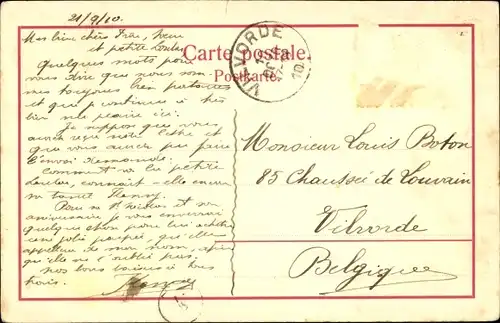 21/9/10.
Mes bien chers Frère, Soeur
et petite Loulou
Quelques mots pour
vous dire que nous sommes
toujours bien portants
et que continue à très
bien me plaire ici.
Je suppose que vous
aurez reçu notre lettre et
que vous aurez pu faire
l'envoi demandé.
Comment va la petite
Loulou, connait-elle encore
sa tante Fanny.
Pour sa St Nicolas et son
anniversaire je vous enverrai
quelque chose pour lui acheter
une jolie poupée, qu'elle
appellera de mon nom, afin
qu'elle ne m'oublie pas.
Nos bons baisers à tous
trois.
Fanny
Carte postale.
Postkarte.
VILVORDE
10
Monsieur Louis Boton
85 Chaussée de Louvain
Vilvorde
Belgique